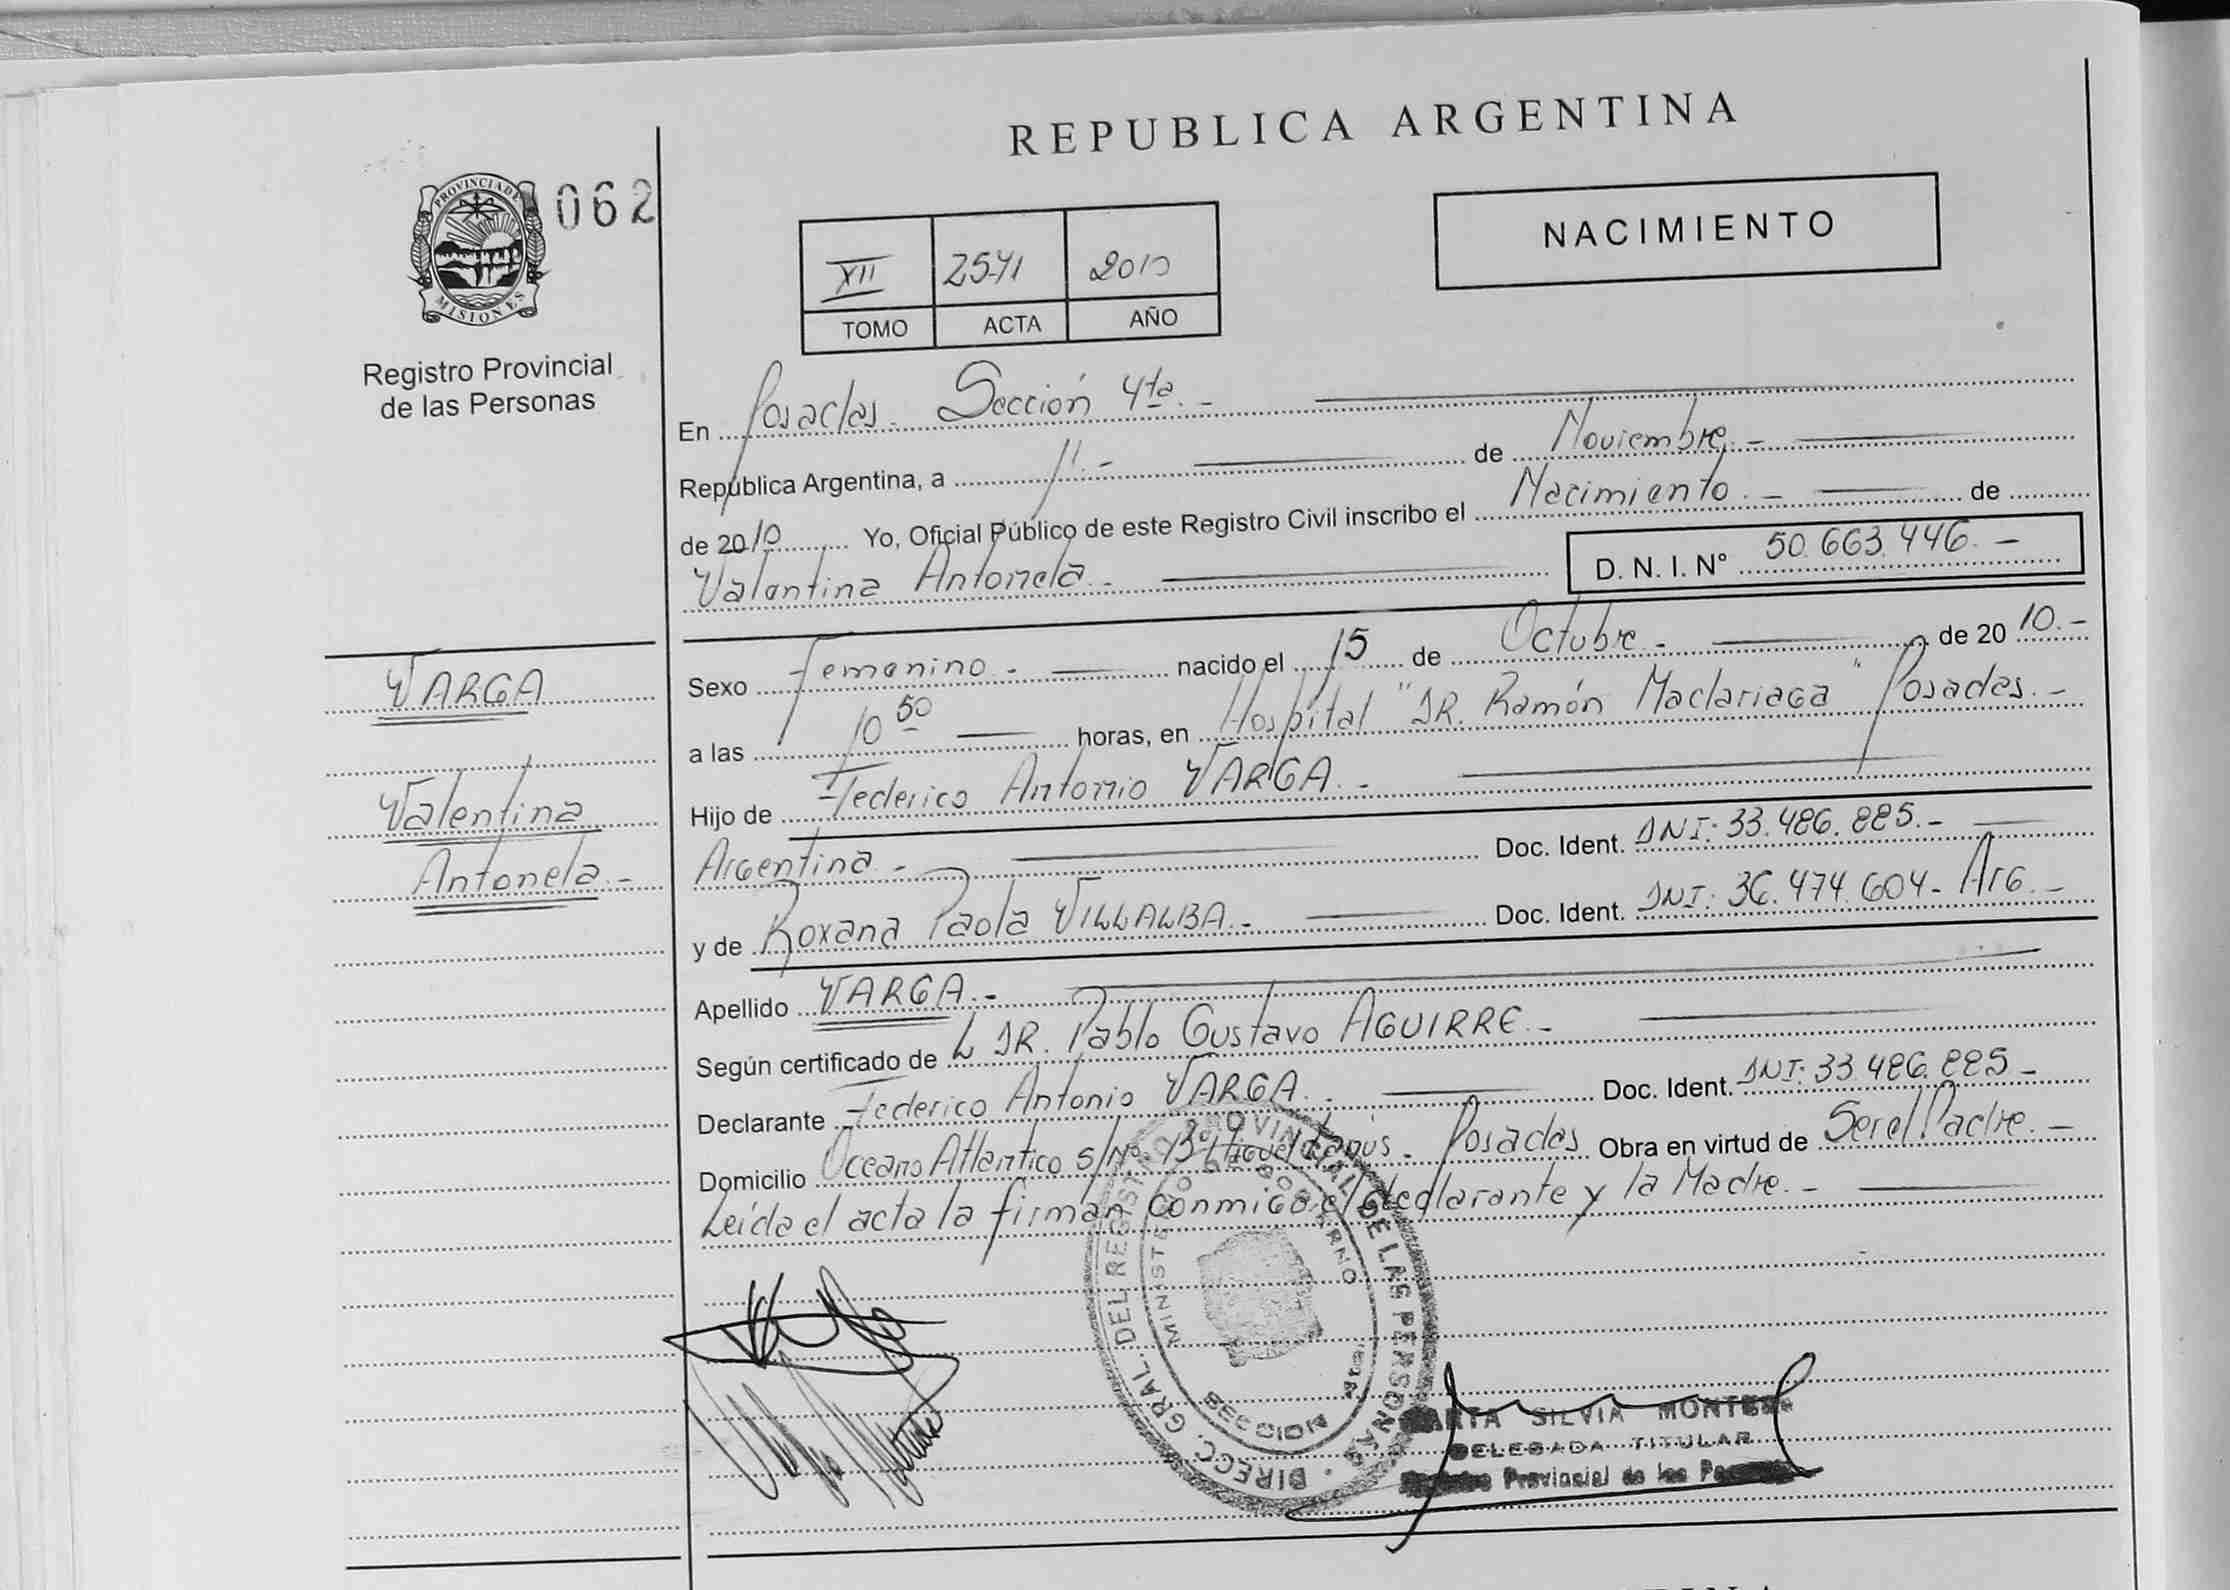 REPUBLICA ARGENTINA
PROVINCIA DE
MISIONES
062
Registro Provincial
de las Personas
XII 2541 2010
TOMO ACTA AÑO
NACIMIENTO
En Posadas. Sección 4ta.-
República Argentina, a 11.- de Noviembre.-
de 2010 Yo, Oficial Público de este Registro Civil inscribo el Nacimiento.- de
Valentina Antonela.- D. N. I. Nº 50.663.446.-
VARGA
Valentina
Antonela.-
Sexo Femenino.- nacido el 15 de Octubre.- de 2010.-
a las 10 50 horas, en Hospital "DR. Ramón Madariaga" Posadas.-
Hijo de Federico Antonio VARGA.-
Argentina.- Doc. Ident. DNI: 33.486.885.-
y de Roxana Paola VILLALBA.- Doc. Ident. DNI: 36.474.604- Arg.-
Apellido VARGA.-
Según certificado de DR. Pablo Gustavo AGUIRRE.-
Declarante Federico Antonio VARGA.- Doc. Ident. DNI: 33.486.885-
Domicilio Oceano Atlantico s/Nº Bº Miguel Lanús. Posadas Obra en virtud de Ser el Padre.-
Leída el acta la firman conmigo el declarante y la Madre.-
DIRECC. GRAL. DEL REGISTRO PROVINCIAL DE LAS PERSONAS
MINISTERIO DE GOBIERNO
SECCION 4ta.
SILVIA
DELEGADA TITULAR
Provincial de las